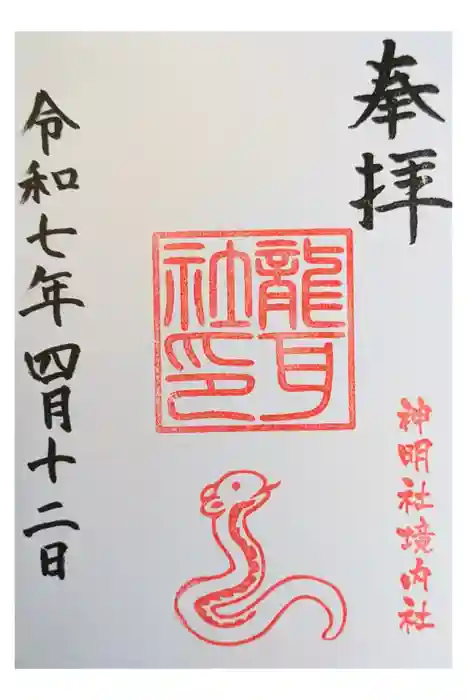 奉拝
龍耳
社印
神明社境内社
令和七年四月十二日